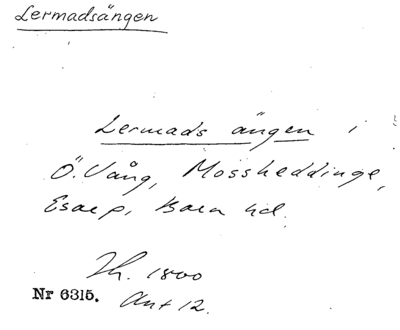 Lermadsängen
Lermads ängen i
Ö. Vång, Mossheddinge,
Esarp, Bara hd.
Th. 1800
Nr 6315. Akt 12.